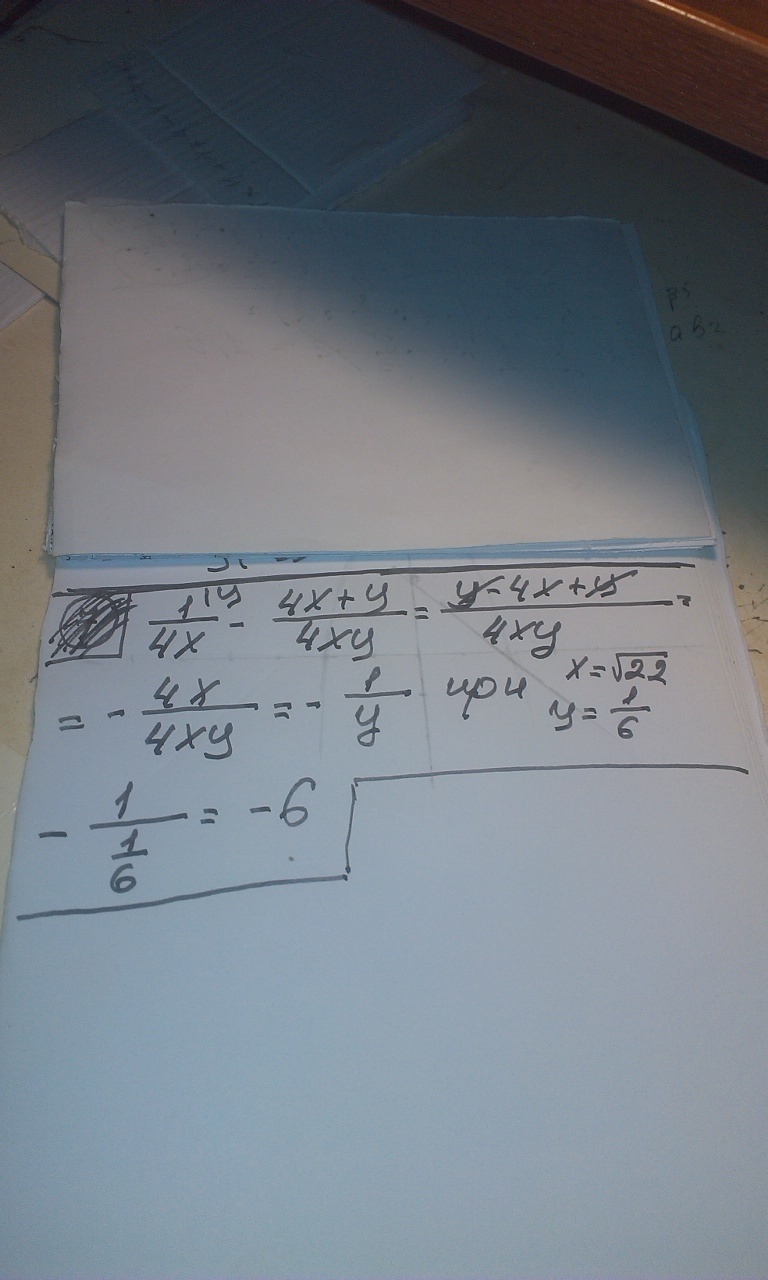 1/4x |y - 4x+y/4xy = y-4x+y/4xy =
= - 4x/4xy = - 1/y при x=√22 y=1/6
- 1/(1/6) = -6